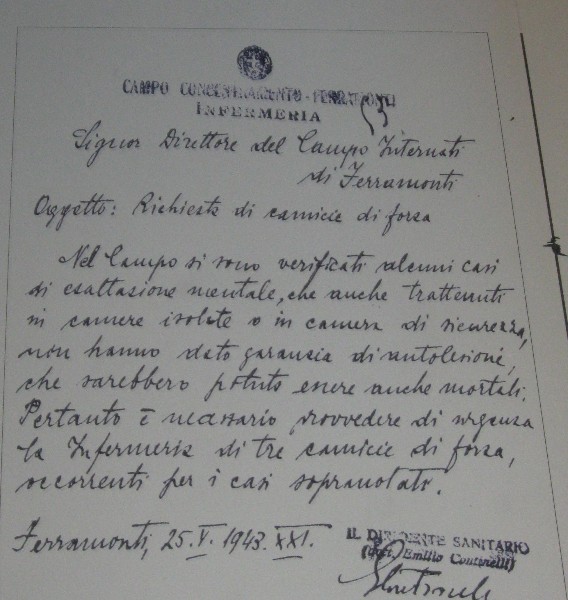 CAMPO CONCENTRAMENTO - FERRAMONTI
INFERMERIA
Signor Direttore del Campo Internati
di Ferramonti
Oggetto: Richieste di camicie di forsa
Nel Campo si sono verificati alcuni casi
di esaltasione mentale, che anche trattenuti
in camere isolate o in camera di sicurezza,
non hanno dato garansia di autolesione,
che sarebbero potuto essere anche mortali.
Pertanto è necessario provvedere di urgensa
la Infermeria di tre camicie di forsa,
occorrenti per i casi sopranotato.
Ferramonti, 25. V. 1943. XXI.
IL DIRIGENTE SANITARIO
(dott. Emilio